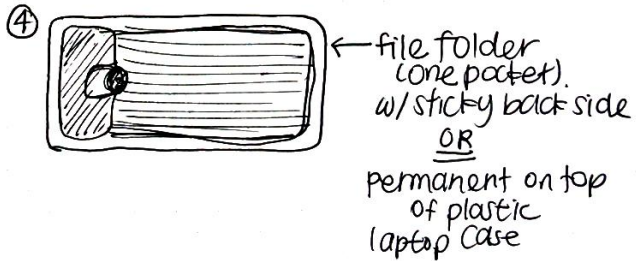 ④
←file folder
(one pocket).
w/ sticky back side
OR
permanent on top
of plastic
laptop case